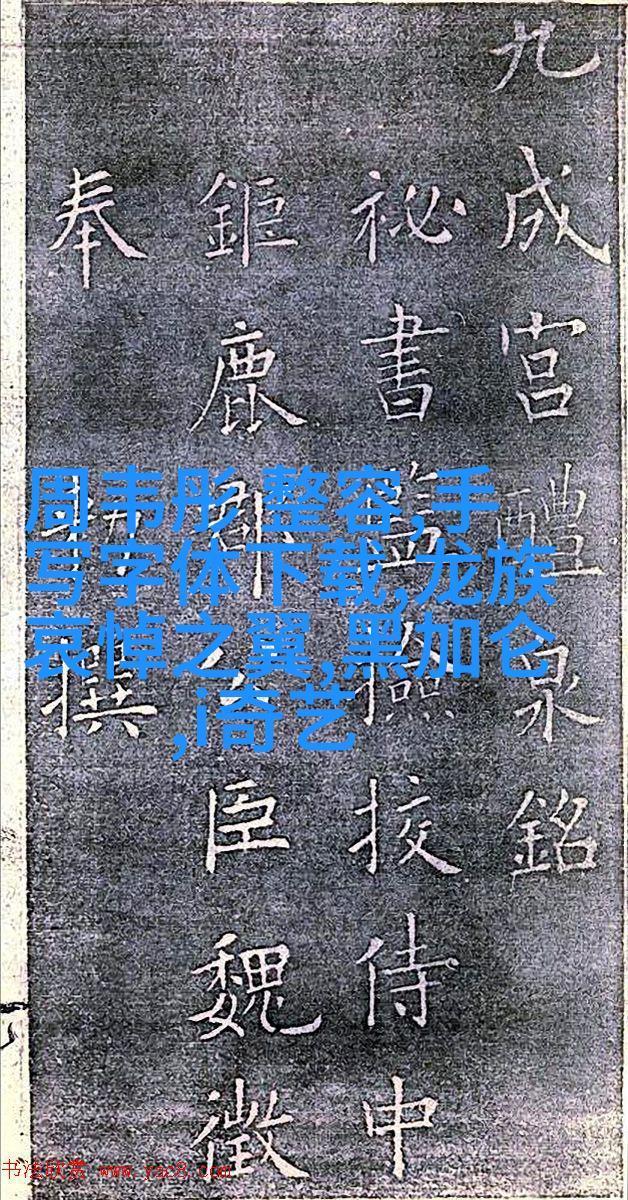 九成宫醴泉銘
祕書監撿挍侍申
鉅鹿郡公臣魏徵
奉勅撰
周韦彤 整容,手
写字体下载,龙族
哀悼之翼,黑加仑
,i奇艺
书法欣赏 www.yac8.com